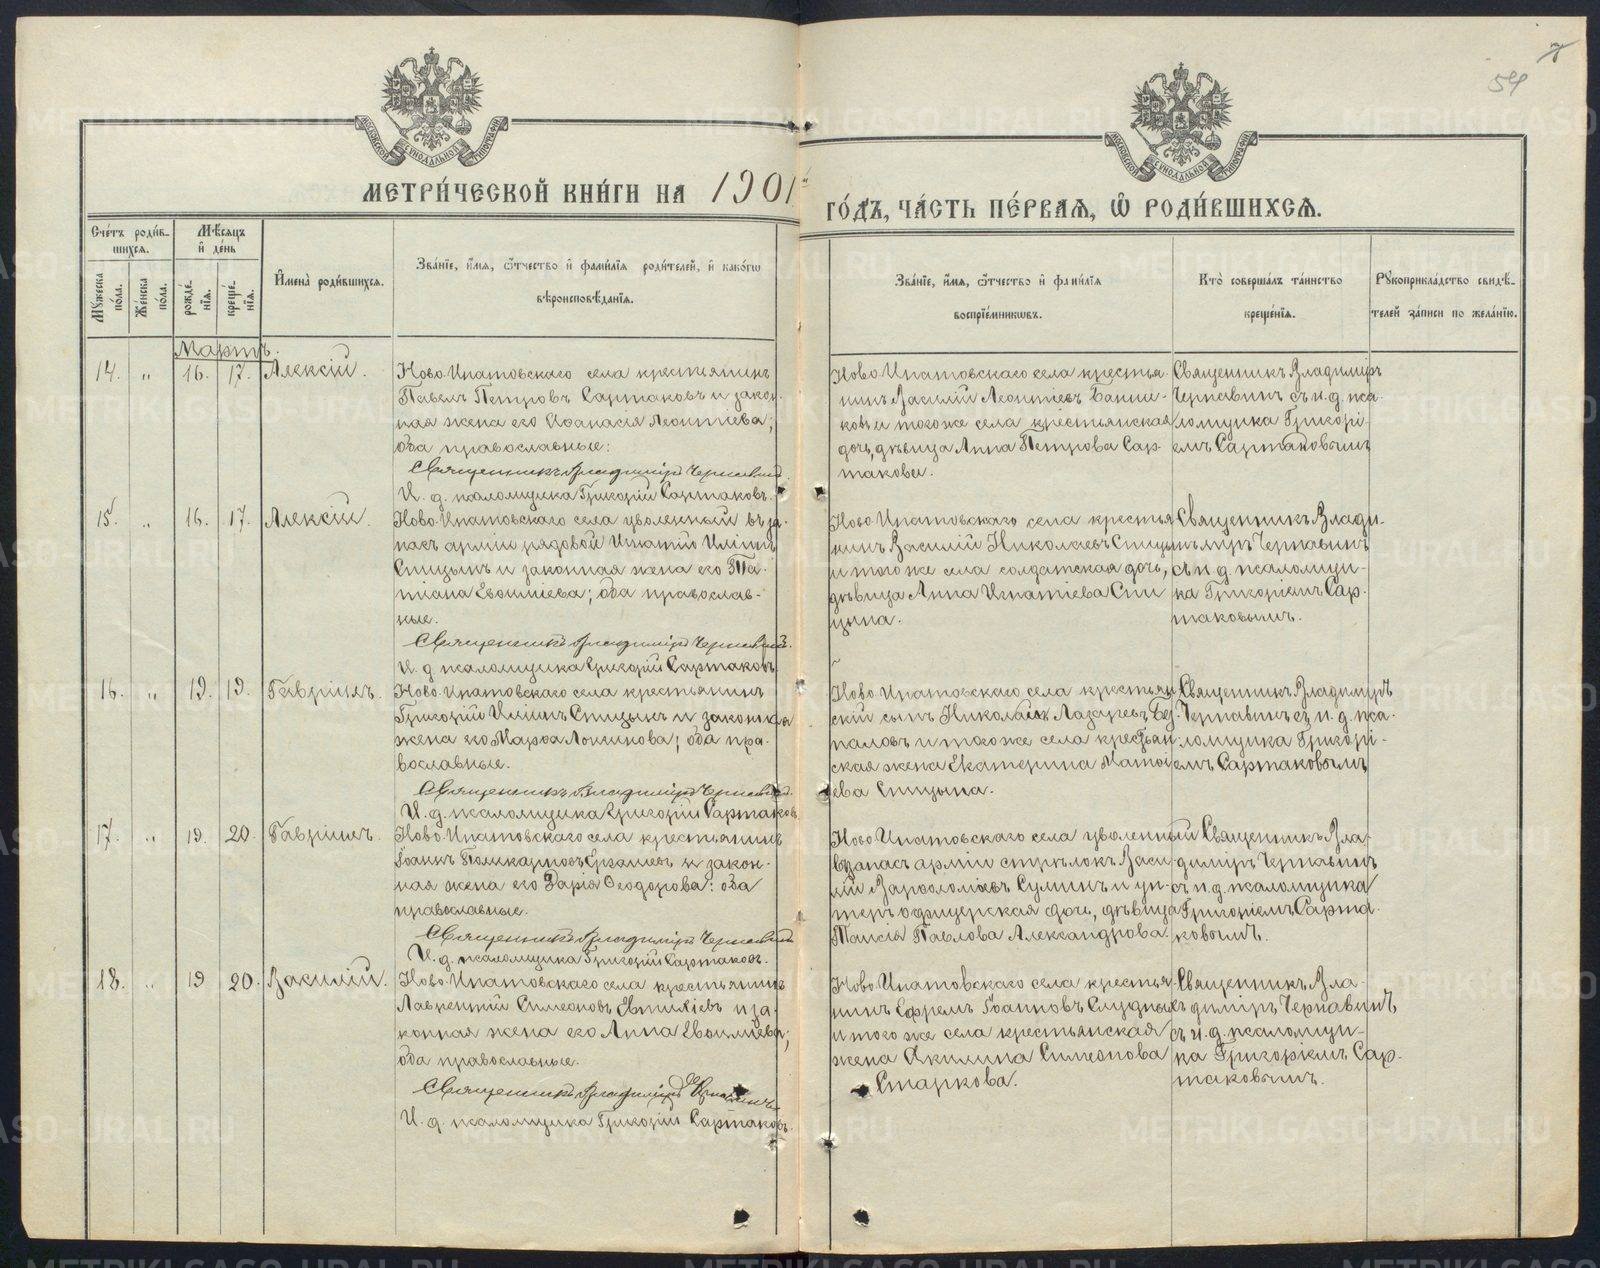 7
54
МЕТРИ́ЧЕСКОЙ КНИ́ГИ НА 1901
ГО́ДЪ, ЧА́СТЬ ПЕ́РВАЯ, Ѡ РОДИ́ВШИХСЯ.
Сче́тъ роди́в-
шихся.
Мѣ́сяцъ
и́ де́нь
Мꙋ́жеска по́ла.
Же́нска по́ла.
рожде́нїя.
креще́нїя.
И҆мена̀ роди́вшихся.
Зва́нїе, и҆́мя, ѻ҆́тчество и҆ фами́лїя роди́телей, и҆ како́гѡ
вѣроисповѣ́данїя.
Зва́нїе, и҆́мя, ѻ҆́тчество и҆ фами́лїя
воспрїе́мникѡвъ.
Кто̀ соверша́лъ та́инство
креще́нїя.
Рꙋкоприкла́дство свидѣ́-
телей за́писи по жела́нїю.
Мартъ.
14. " 16. 17. Алексій.
Ново-Ипатовскаго села крестьянинъ
Павелъ Петровъ Сартаковъ и закон-
ная жена его Аѳанасія Леонтіева;
оба православные:
Священникъ Владиміръ Чернавинъ
И. д. псаломщика Григорій Сартаковъ.
Ново-Ипатовскаго села крестья-
нинъ Василій Леонтіевъ
ковъ и того же села крестьянская
дочь, дѣвица Анна Петрова Сар-
такова.
Священникъ Владиміръ
Чернавинъ съ и. д. пса-
ломщика Григорі-
емъ Сартаковымъ
15. " 16. 17. Алексій.
Ново-Ипатовскаго села уволенный въ за-
пасъ арміи рядовой Игнатій Иліинъ
Спицынъ и законная жена его Та-
тіана Евѳиміева; оба православ-
ные.
Священникъ Владиміръ Чернавинъ.
И. д. псаломщика Григорій Сартаковъ
Ново-Ипатовскаго села крестья-
нинъ Василій Николаевъ Спицынъ
и того же села солдатская дочь,
дѣвица Анна Игнатіева Спи-
цына.
Священникъ Влади-
міръ Чернавинъ
съ и. д. псаломщи-
ка Григоріемъ Сар-
таковымъ.
16. " 19. 19. Гавріилъ.
Ново-Ипатовскаго села крестьянинъ
Григорій Иліинъ Спицынъ и законная
жена его Марѳа Логинова; оба пра-
вославные.
Священникъ Владиміръ Чернавинъ.
И. д. псаломщика Григорій Сартаковъ
Ново-Ипатовскаго села крестьян-
скій сынъ Николай Лазаревъ
паловъ и того же села крестьян-
ская жена Екатерина Матѳі-
ева Спицына.
Священникъ Владиміръ
Чернавинъ съ и. д. пса-
ломщика Григорі-
емъ Сартаковымъ
17. " 19. 20. Гавріилъ.
Ново-Ипатовскаго села крестьянинъ
Іоаннъ Поликарповъ и закон-
ная жена его Дарія Ѳеодорова: оба
православные.
Священникъ Владиміръ Чернавинъ
И. д. псаломщика Григорій Сартаковъ.
Ново-Ипатовскаго села уволенный
въ запасъ арміи стрѣлокъ Васи-
лій Варѳоломѣевъ Сулинъ и ун-
теръ офицерская дочь, дѣвица
Таисія Павлова Александрова.
Священникъ Вла-
диміръ Чернавинъ
съ и. д. псаломщика
Григоріемъ Сарта-
ковымъ.
18. " 19 20. Василій.
Ново-Ипатовскаго села крестьянинъ
Лаврентій Симеоновъ и за-
конная жена его Анна Евѳиміева;
оба православные.
Священникъ Владиміръ Чернавинъ
И. д. псаломщика Григорій Сартаковъ.
Ново-Ипатовскаго села крестья-
нинъ Ефремъ Іоанновъ
и того же села крестьянская
жена Акилина Симеонова
Старкова.
Священникъ Вла-
диміръ Чернавинъ
съ и. д. псаломщи-
ка Григоріемъ Сар-
таковымъ.
METRIKI.GASO-URAL.RU